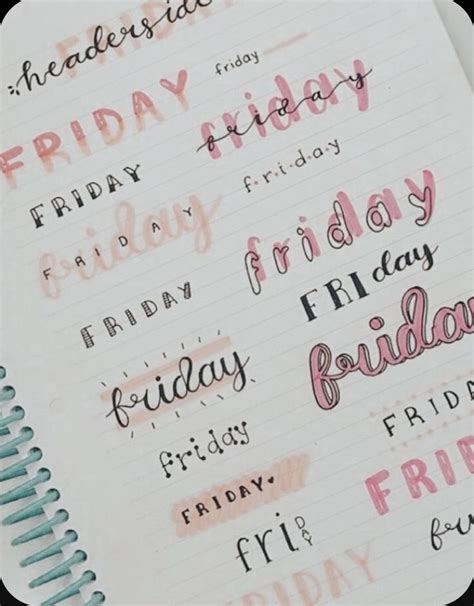 FRIDAY
headerside
FRIDAY
FRIDAY
friday
FRIDAY
FRIDAY
friday
friday
FRIDAY♥
fri DAY
FRIDAY
friday
friday
friday
f·r·i·d·a·y
friday
FRIday
friday
FRIDAY
FRID